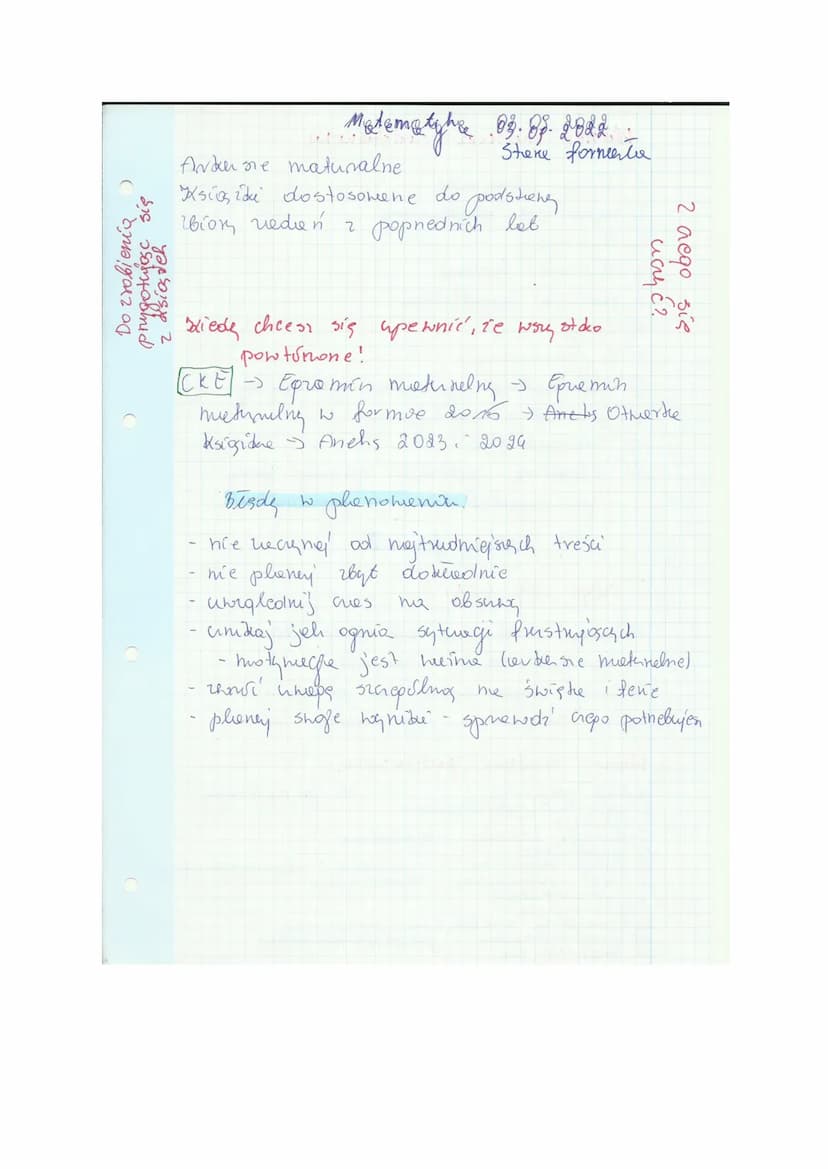 Matematyka 09.09.2022
Stara formuła
Arkusze maturalne
Książki dostosowane do podstawy
Zbiory zadań z poprzednich lat
Z czego się
uczyć?
Do zrobienia
przygotowując się
z książek
Kiedy chcesz się upewnić, że wszystko
powtórzone!
CKE -> Egzamin maturalny -> Egzamin
maturalny w formule 2015 -> Aneks Otwarte
książki -> Aneks 2023 i 2024
Błędy w planowaniu.
- nie zaczynaj od najtrudniejszych treści
- nie planuj zbyt dokładnie
- uwzględnij czas na obsuwy
- unikaj jak ognia sytuacji frustrujących
- motywacja jest ważna (arkusze maturalne)
- zwróć uwagę szczególną na święta i ferie
- planuj swoje wyniki - sprawdź czego potrzebujesz